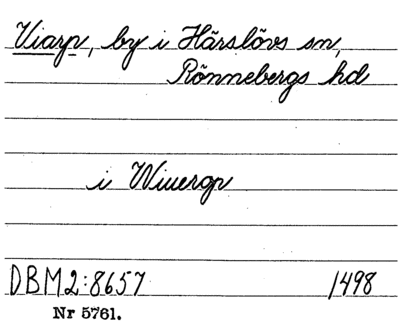 Viarp, by i Härslövs sn,
Rönnebergs hd
i Wiuerop
DBM2:8657 1498
Nr 5761.